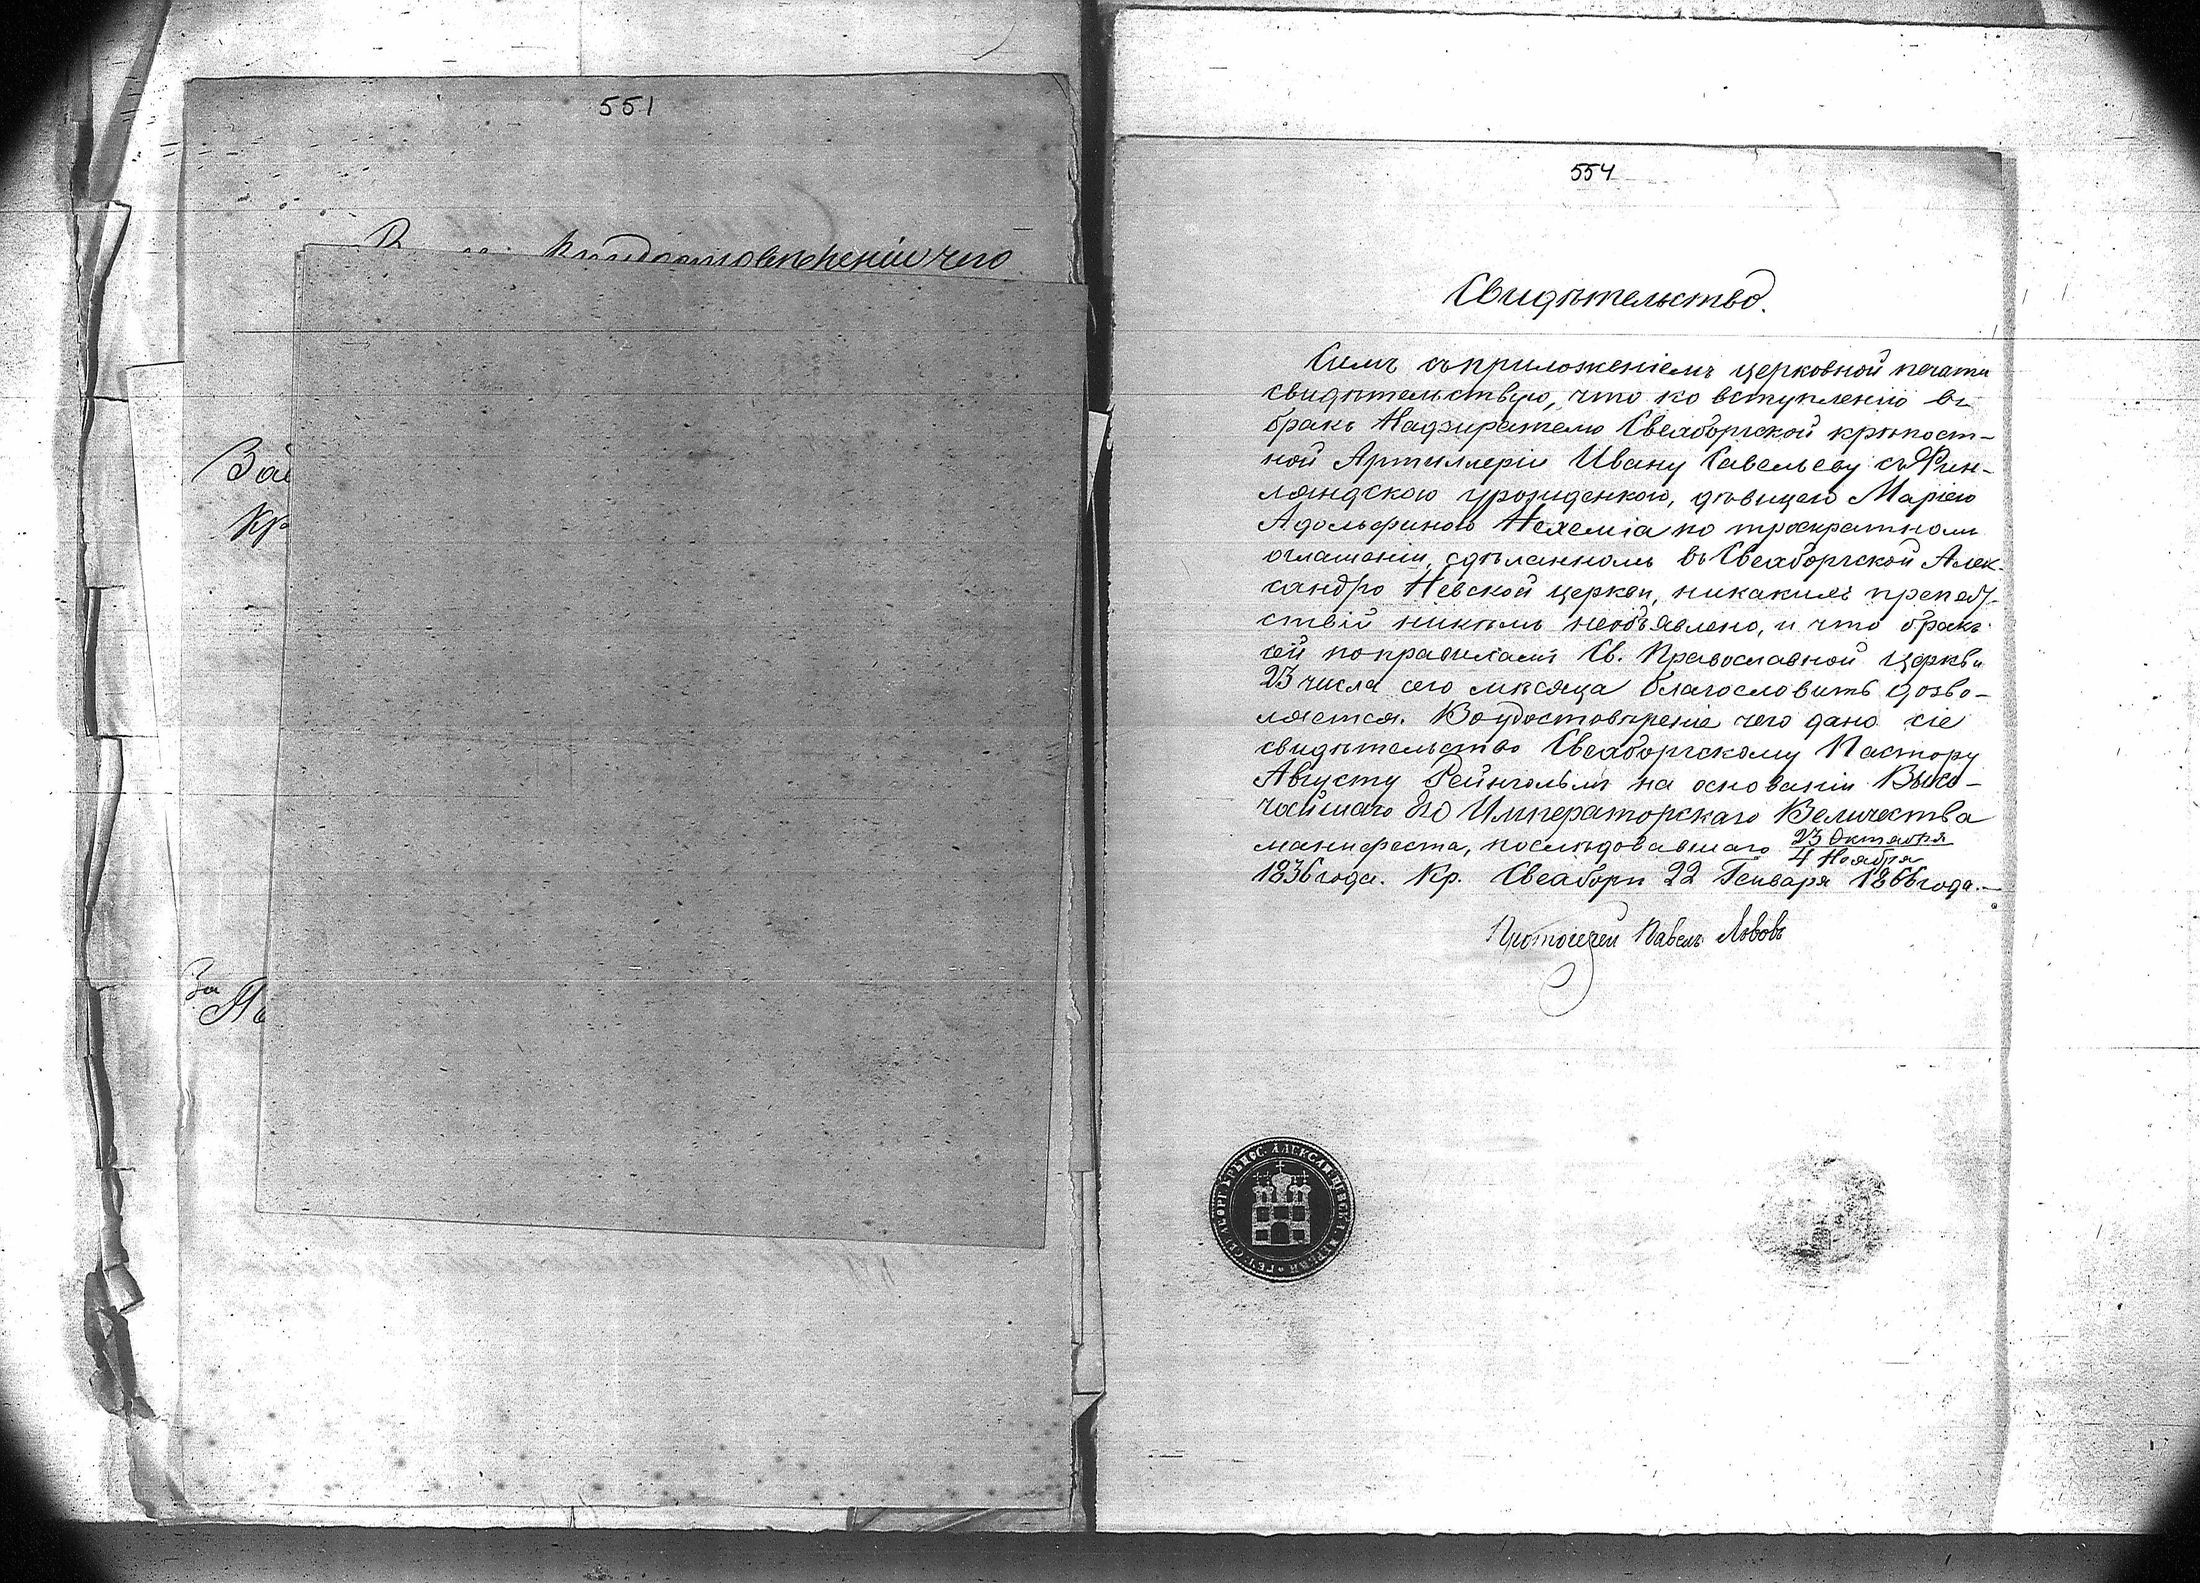 551
Въ удостовереніи чего
Зай
Кр
За
554
Свидѣтельство.
Симъ съ приложеніемъ церковной печати
свидѣтельствую, что ко вступленію въ
бракъ Надзирателю Свеаборгской крѣпост-
ной Артиллеріи Ивану Савельеву съ Фин-
ляндскою уроженкою, дѣвицею Маріею
Адольфиною Нехеміа по троекратномъ
оглашеніи, сдѣланномъ въ Свеаборгской Алек-
сандро Невской церкви, никакихъ препят-
ствій никѣмъ необъявлено, и что бракъ
сей по правиламъ Св. Православной Церкви
23 числа сего мѣсяца благословить дозво-
ляется. Во удостовѣреніе чего дано сіе
свидѣтельство Свеаборгскому Пастору
Августу на основаніи Высо-
чайшаго Его Императорскаго Величества
манифеста, послѣдовавшаго 23 Октября
4 Ноября
1836 года. Кр. Свеаборгъ 22 Генваря 1866 года.—
Протоіерей Павелъ Львовъ